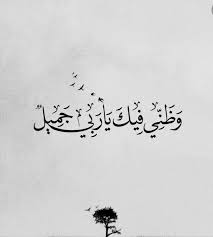 وَظَنِّي فِيكَ يَا رَبِّي جَمِيلٌ